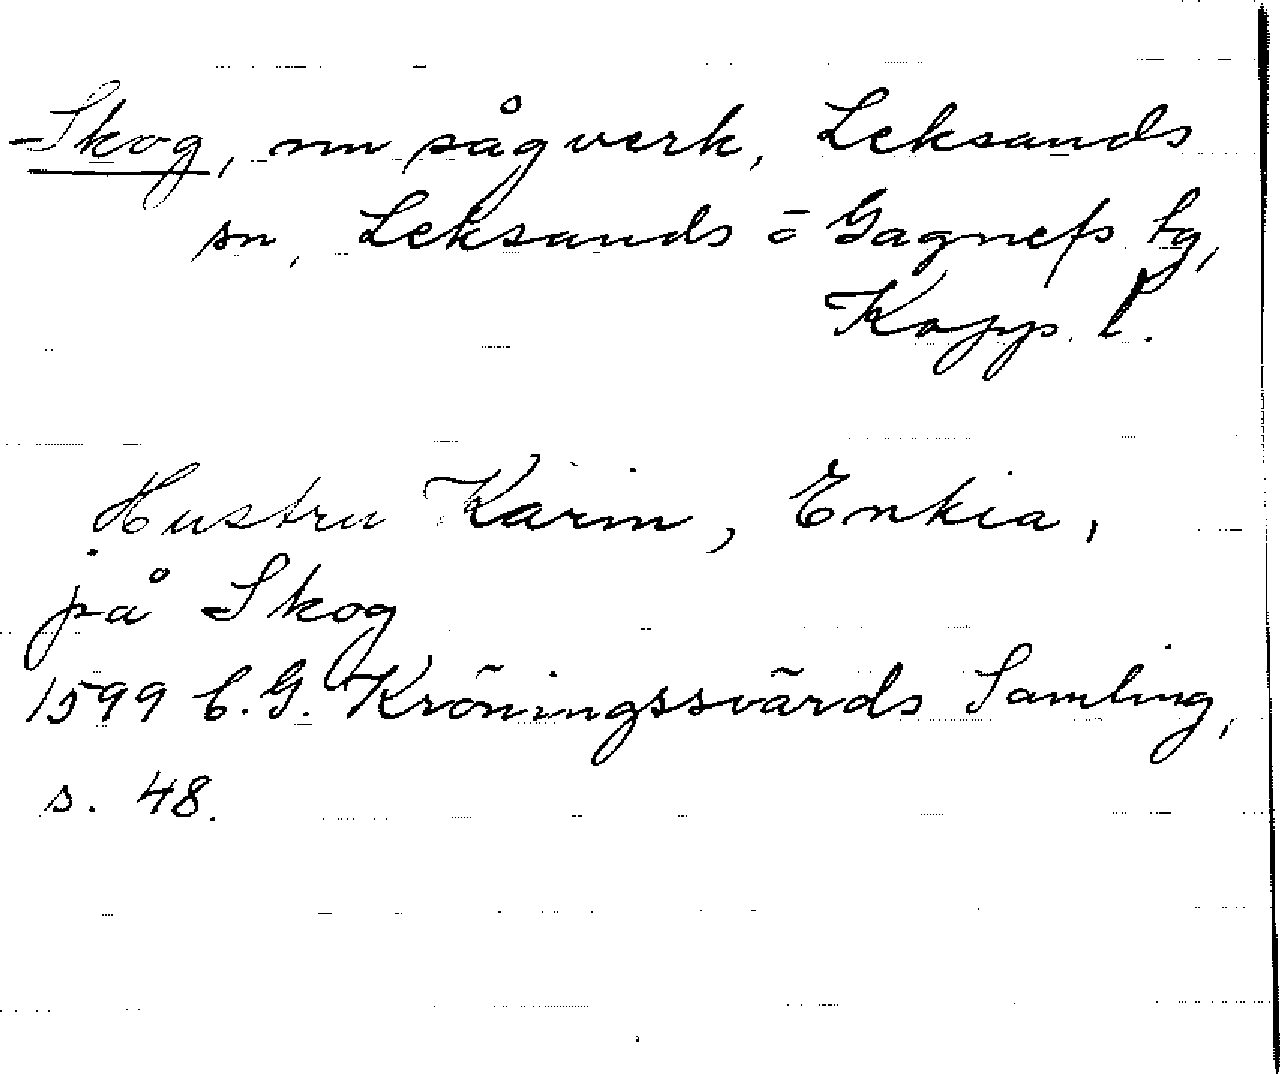 Skog, nu sågverk, Leksands
sn, Leksands o Gagnefs tg,
Kopp. l.
Hustru Karin, Enkia,
på Skog
1599 C. G. Kröningssvärds Samling,
s. 48.